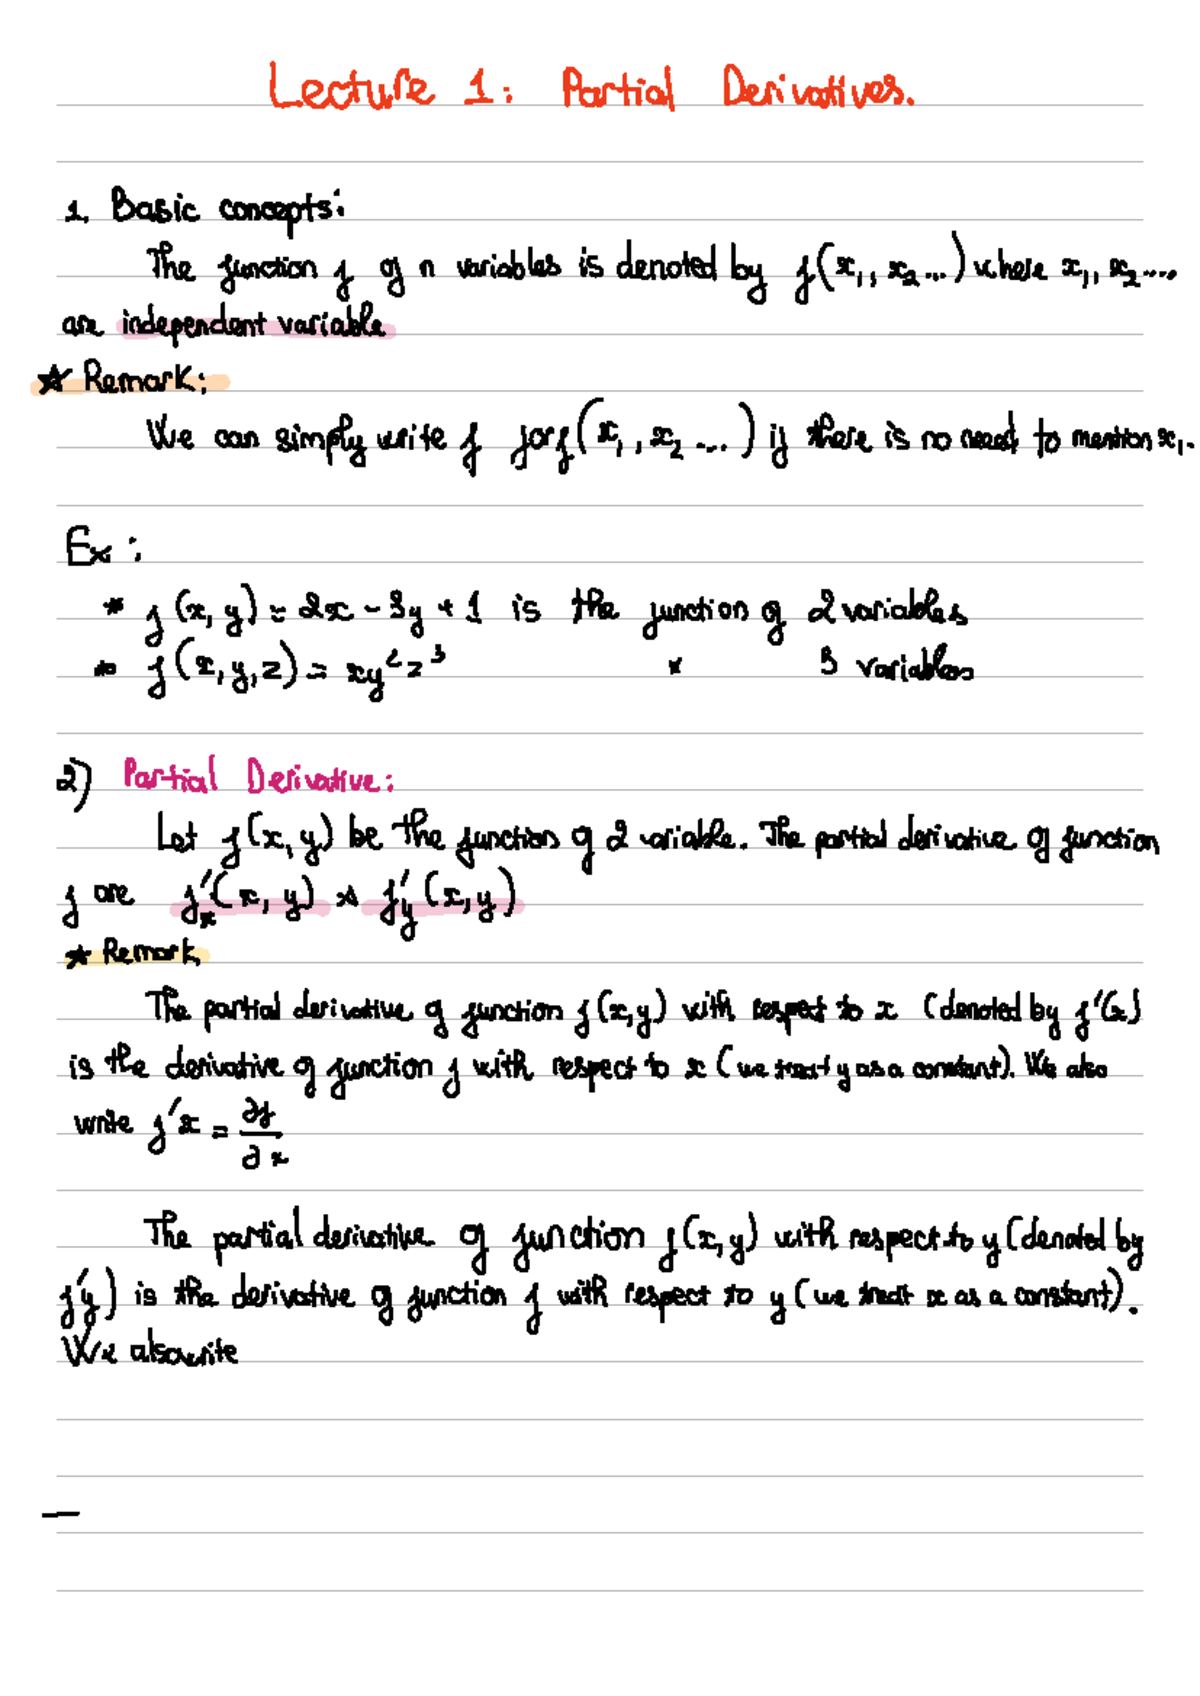 Lecture 1: Partial Derivatives.
1. Basic concepts:
The function f of n variables is denoted by f(x₁, x₂...) where x₁, x₂....
are independent variable
☆ Remark:
We can simply write f for f(x₁, x₂...) if there is no need to mention x₁.
Ex:
* f(x, y) = 2x - 3y + 1 is the function of 2 variables
* f(x, y, z) = xy²z³ " 3 variables
2) Partial Derivative:
Let f(x, y) be the function of 2 variable. The partial derivative of function
f are f'ₓ(x, y) & f'y(x, y)
☆ Remark
The partial derivative of function f(x,y) with respect to x (denoted by f'(x)
is the derivative of function f with respect to x (we treat y as a constant). We also
write f'x = ∂f/∂x
The partial derivative of function f(x, y) with respect to y (denoted by
f'y) is the derivative of function f with respect to y (we treat x as a constant).
We also write